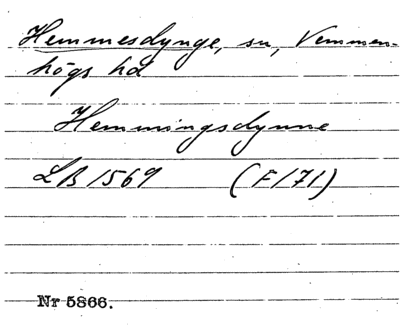 Hemmesdynge, sn, Vemmen-
högs hd
Hemmingsdynne
LB 1569 (F/71)
Nr 5866.